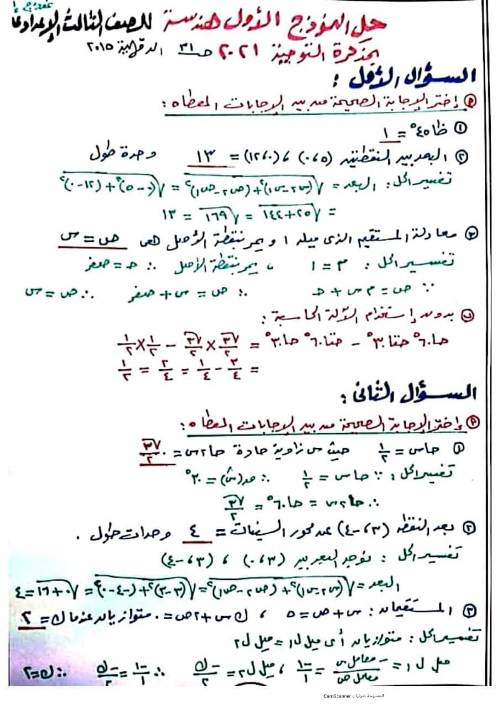 حل النموذج الأول هندسة للصف الثالث الإعدادى
بمذكرة التوجية ٢٠٢١ صـ ٣١ الدقهلية ٢٠١٥
السؤال الأول :
إختر الإجابة الصحيحة من بين الإجابات المعطاه :
① ظا ٤٥° = ١
② البعد بين النقطتين (٥،٠) ، (٠،١٢) = ١٣ وحدة طول
تفسير الحل : البعد = √(س٢-س١)²+(ص٢-ص١)² = √(٠-٥)²+(١٢-٠)²
= √٢٥+١٤٤ = √١٦٩ = ١٣
③ معادلة المستقيم الذى ميله ١ ويمر بنقطة الأصل هى ص = س
تفسير الحل : م = ١ ، يمر بنقطة الأصل ∴ حـ = صفر
∵ ص = م س + حـ ∴ ص = س + صفر ∴ ص = س
ب) بدون إستخدام الآلة الحاسبة :
حا ٦٠° حتا ٣٠° - حتا ٦٠° حا ٣٠° = √٣/٢ × √٣/٢ - ١/٢ × ١/٢
= ٣/٤ - ١/٤ = ٢/٤ = ١/٢
السؤال الثانى :
إختر الإجابة الصحيحة من بين الإجابات المعطاه :
① حاس = ١/٢ حيث س زاوية حادة حا٢س = √٣/٢
تفسير الحل : ∵ حاس = ١/٢ ∴ ق(س) = ٣٠°
∴ حا٢س = حا ٦٠° = √٣/٢
② بعد النقطه (٣،-٤) عن محور السينات = ٤ وحدات طول .
تفسير الحل : نوجد البعد بين (٣،٠) ، (٣،-٤)
البعد = √(س٢-س١)²+(ص٢-ص١)² = √(٣-٣)²+(-٤-٠)² = √٠+١٦ = ٤
③ المستقيمان : س + ص = ٥ ، ك س + ٢ص = ٠ متوازيان عندما ك = ٢
تفسير الحل : متوازيان أى ميل ل١ = ميل ل٢
ميل ل١ = -معامل س/معامل ص = -١/١ ، ميل ل٢ = -ك/٢ ∴ -١/١ = -ك/٢ ∴ ك = ٢
CamScanner